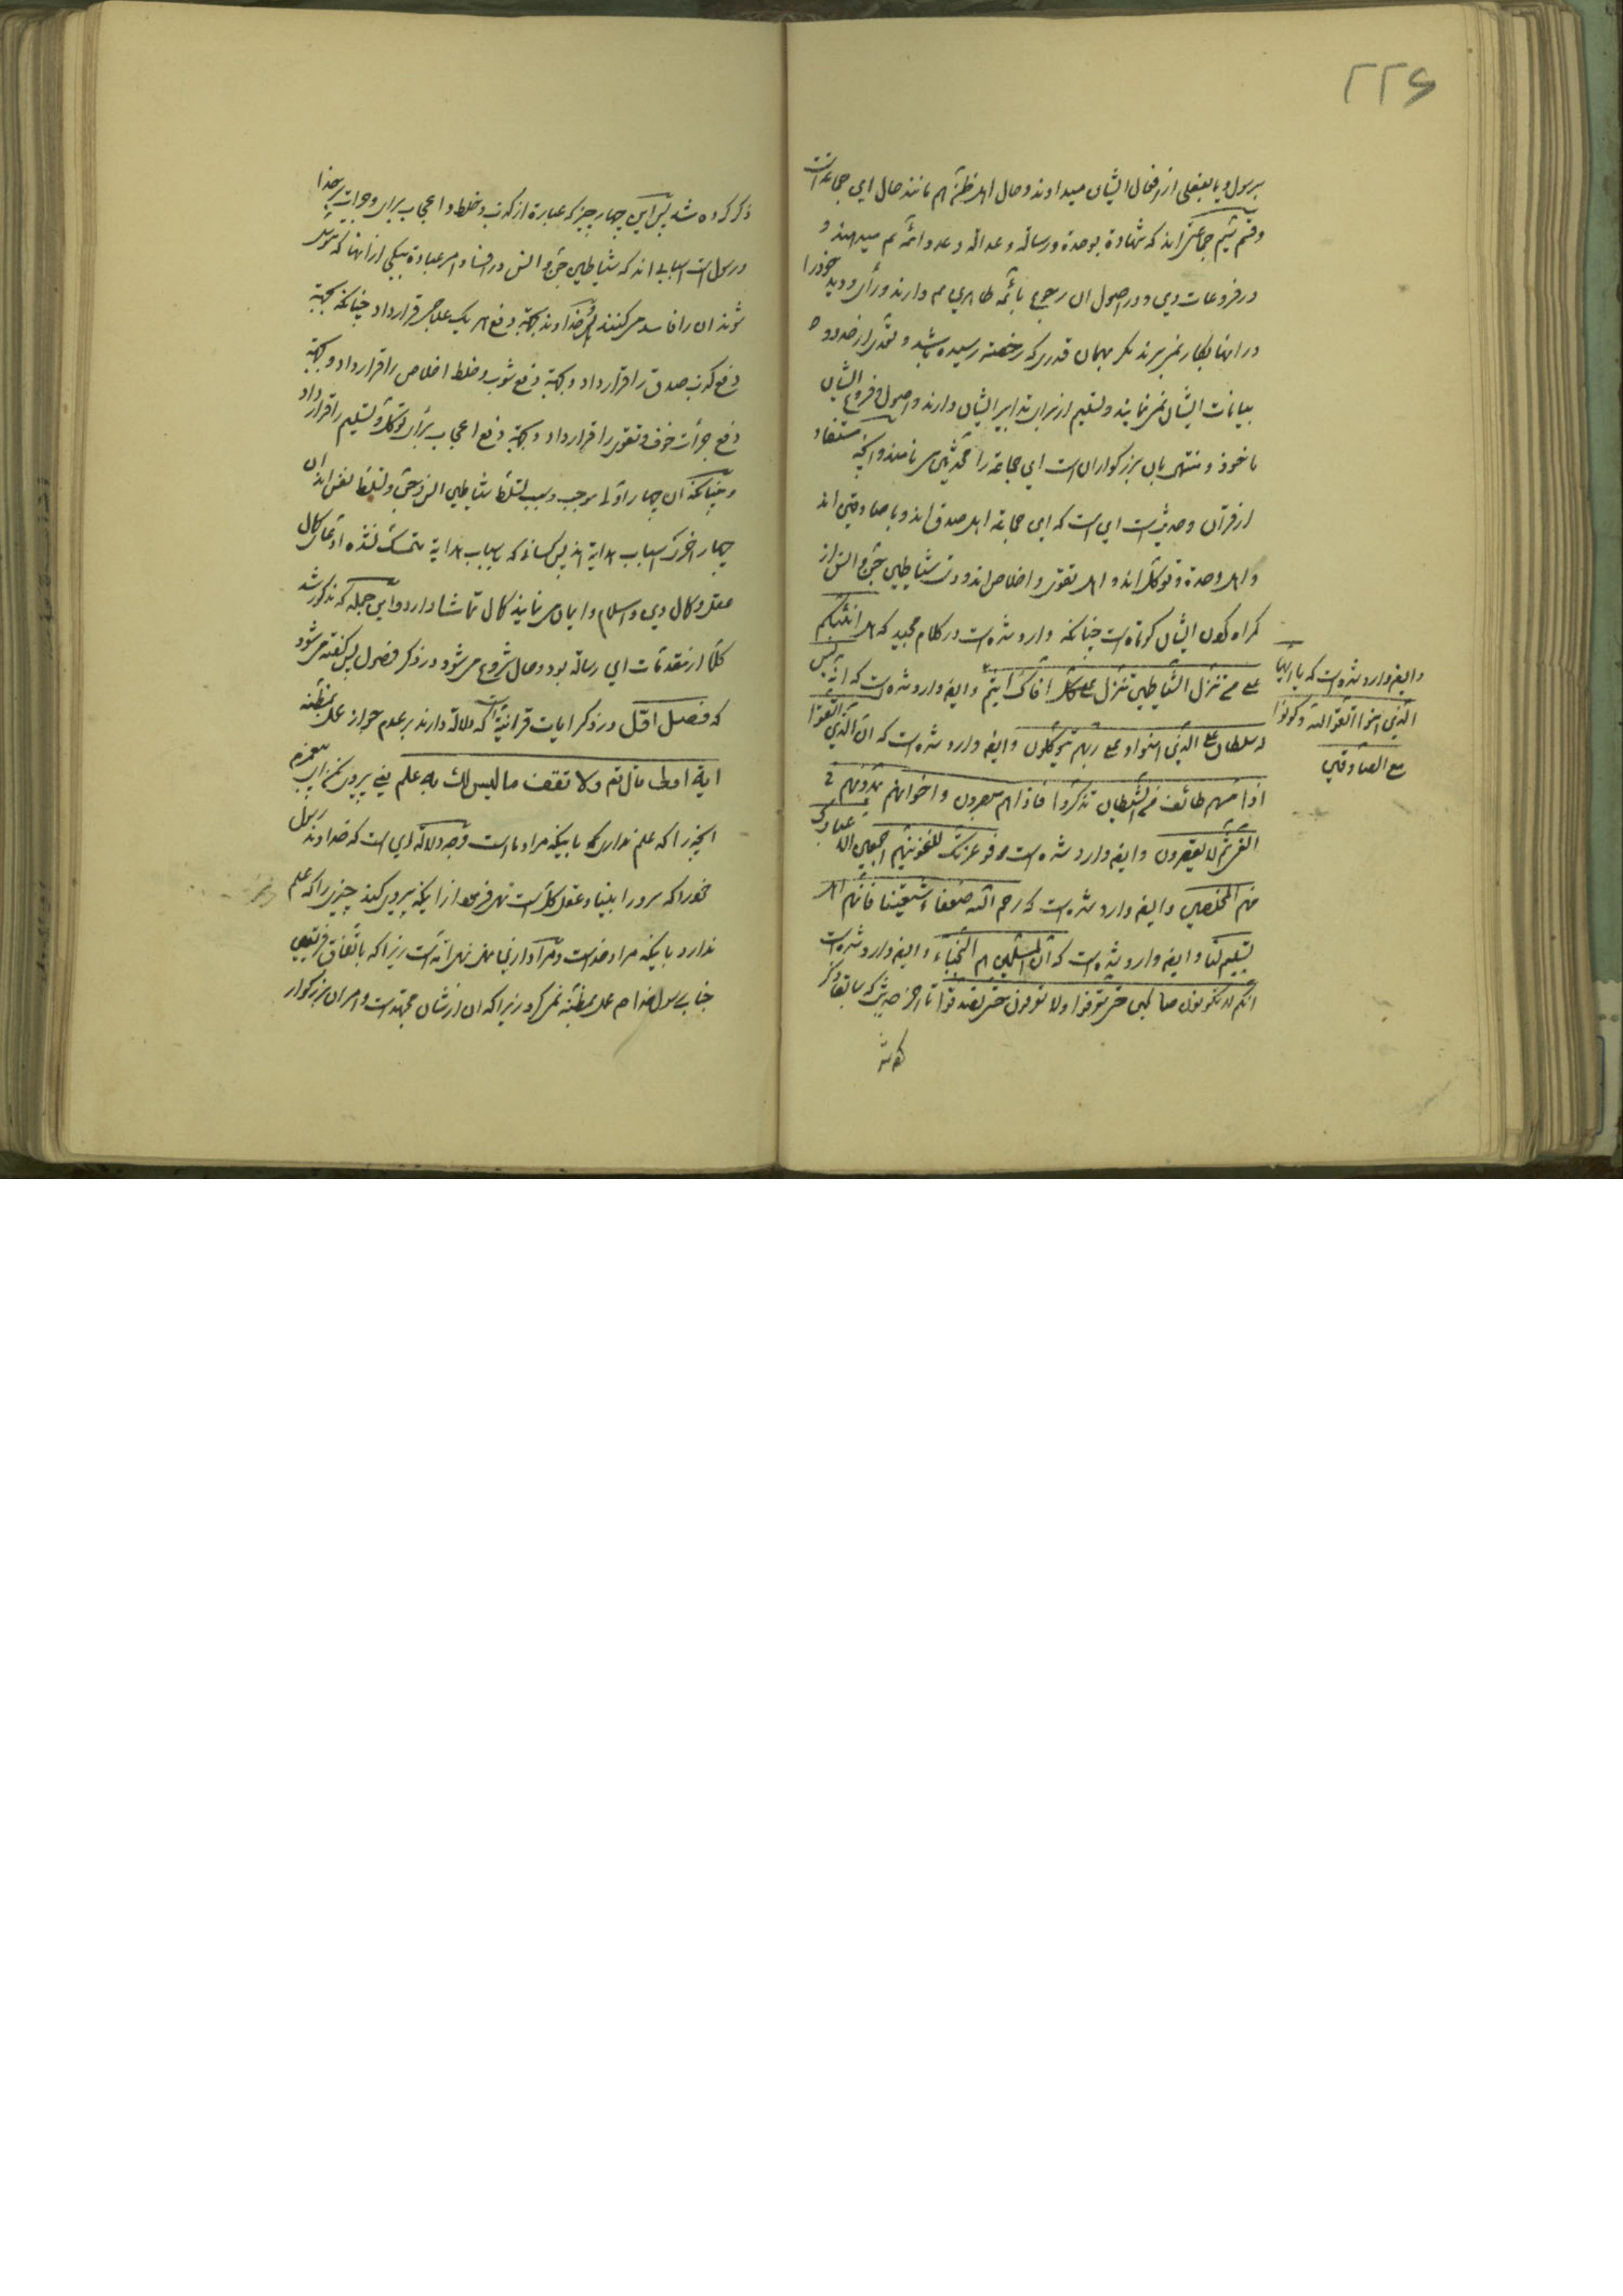 ۲۲۶
برسول و یا بفعلی از افعال ایشان میداوند و حال اهل ظن هم مانند حال این جماعة است
و قسم سیم جماعتی‌اند که شهادة بوحدة و رسالة و عدالة و عدد ائمه ع میدهند و
در فروعات دین و در اصول ان رجوع بائمه طاهرین ع دارند و رأی و دید خود را
در اینها بکار نمیبرند مکر بهمان قدری که رخصة رسیده باشد و تعدی از حدود و
بیانات ایشان نمینمایند و تسلیم از برای تدابیر ایشان دارند و اصول و فروع ایشان
ماخوذ و منتهی بان بزرکواران است این جماعة را محدثین مینامند و انچه مستفاد
از قرآن و حدیث است این است که این جماعة اهل صدق‌اند و با صادقین‌اند
و اهل وحدة و توکل‌اند و اهل تقوی و اخلاص‌اند و دست شیاطین جن و انس از
کمراه کردن ایشان کوتاه است چنانکه وارد شده است در کلام مجید که هل انبئکم
علی من تنزل الشیاطین تنزل علی کل افاک اثیم و ایضا وارد شده است که انه لیس
له سلطان علی الذین امنوا و علی ربهم یتوکلون و ایضا وارد شده است که ان الذین اتقوا
اذا مسهم طائف من الشیطان تذکروا فاذا هم مبصرون و اخوانهم یمدونهم فی
الغی ثم لا یقصرون و ایضا وارد شده است فبعزتک لاغوینهم اجمعین الا عبادک
منهم المخلصین و ایضا وارد شده است که رحم الله ضعفاء شیعتنا فانهم اهل
تسلیم لنا و ایضا وارد شده است که ان المسلمین هم النجباء و ایضا وارد شده است
انکم لا تکونون صالحین حتی تعرفوا ولا تعرفون حتی تصدقوا تا اخر حدیث که سابقا ذکر
و ایضا وارد شده است که یا ایها
الذین امنوا اتقوا الله و کونوا
مع الصادقین
ذکر کرده شد پس این چهار چیز که عبارة از کذب و خلط و اعجاب برای و جرات بر خدا
و رسول است اسبابی‌اند که شیاطین جن و انس در افساد امر عبادة بیکی از انها که متوسل
شوند ان را فاسد میکنند پس خداوند بجهة دفع هر یک علاجی قرارداد چنانکه بجهة
دفع کذب صدق را قرارداد و بجهة دفع شوب و خلط اخلاص را قرارداد و بجهة
دفع جرأت خوف و تقوی را قرارداد و بجهة دفع اعجاب برأی توکل و تسلیم را قرار داد
و چنانکه ان چهار اول موجب و سبب تسلط شیاطین انس و جن و تسلط نفس‌اند ان
چهار اخر که اسباب هدایة‌اند پس کسانی که باسباب هدایة متمسک نشده ادعای کمال
عقل و کمال دین و اسلام و ایمان مینمایند کمال تماشا دارد و این جمله که مذکور شد
کلا از مقدمات این رسالة بود و حال شروع میشود در ذکر فصول پس کفته میشود
که فصل اول در ذکر ایات قرانیة است که دلالة دارند بر عدم جواز عمل بمظنه
ایة اولی قال تع ولا تقف ما لیس لك به علم یعنی پیروی مکن ای پیغمبرم
انچیزی را که علم نداری که باینکه مراد ما است وجه دلالة این است که خداوند رسول
خود را که سرور انبیاء و عقل کل است نهی فرمود از اینکه پیروی کند چیزی را که علم
ندارد باینکه مراد خداست و مراد از این نهی نهی امة است زیرا که باتفاق فریقین
جناب رسول خدا ص عمل بمظنه نمیکرد زیرا که ان از شان مجتهد است و امر ان بزرکوار